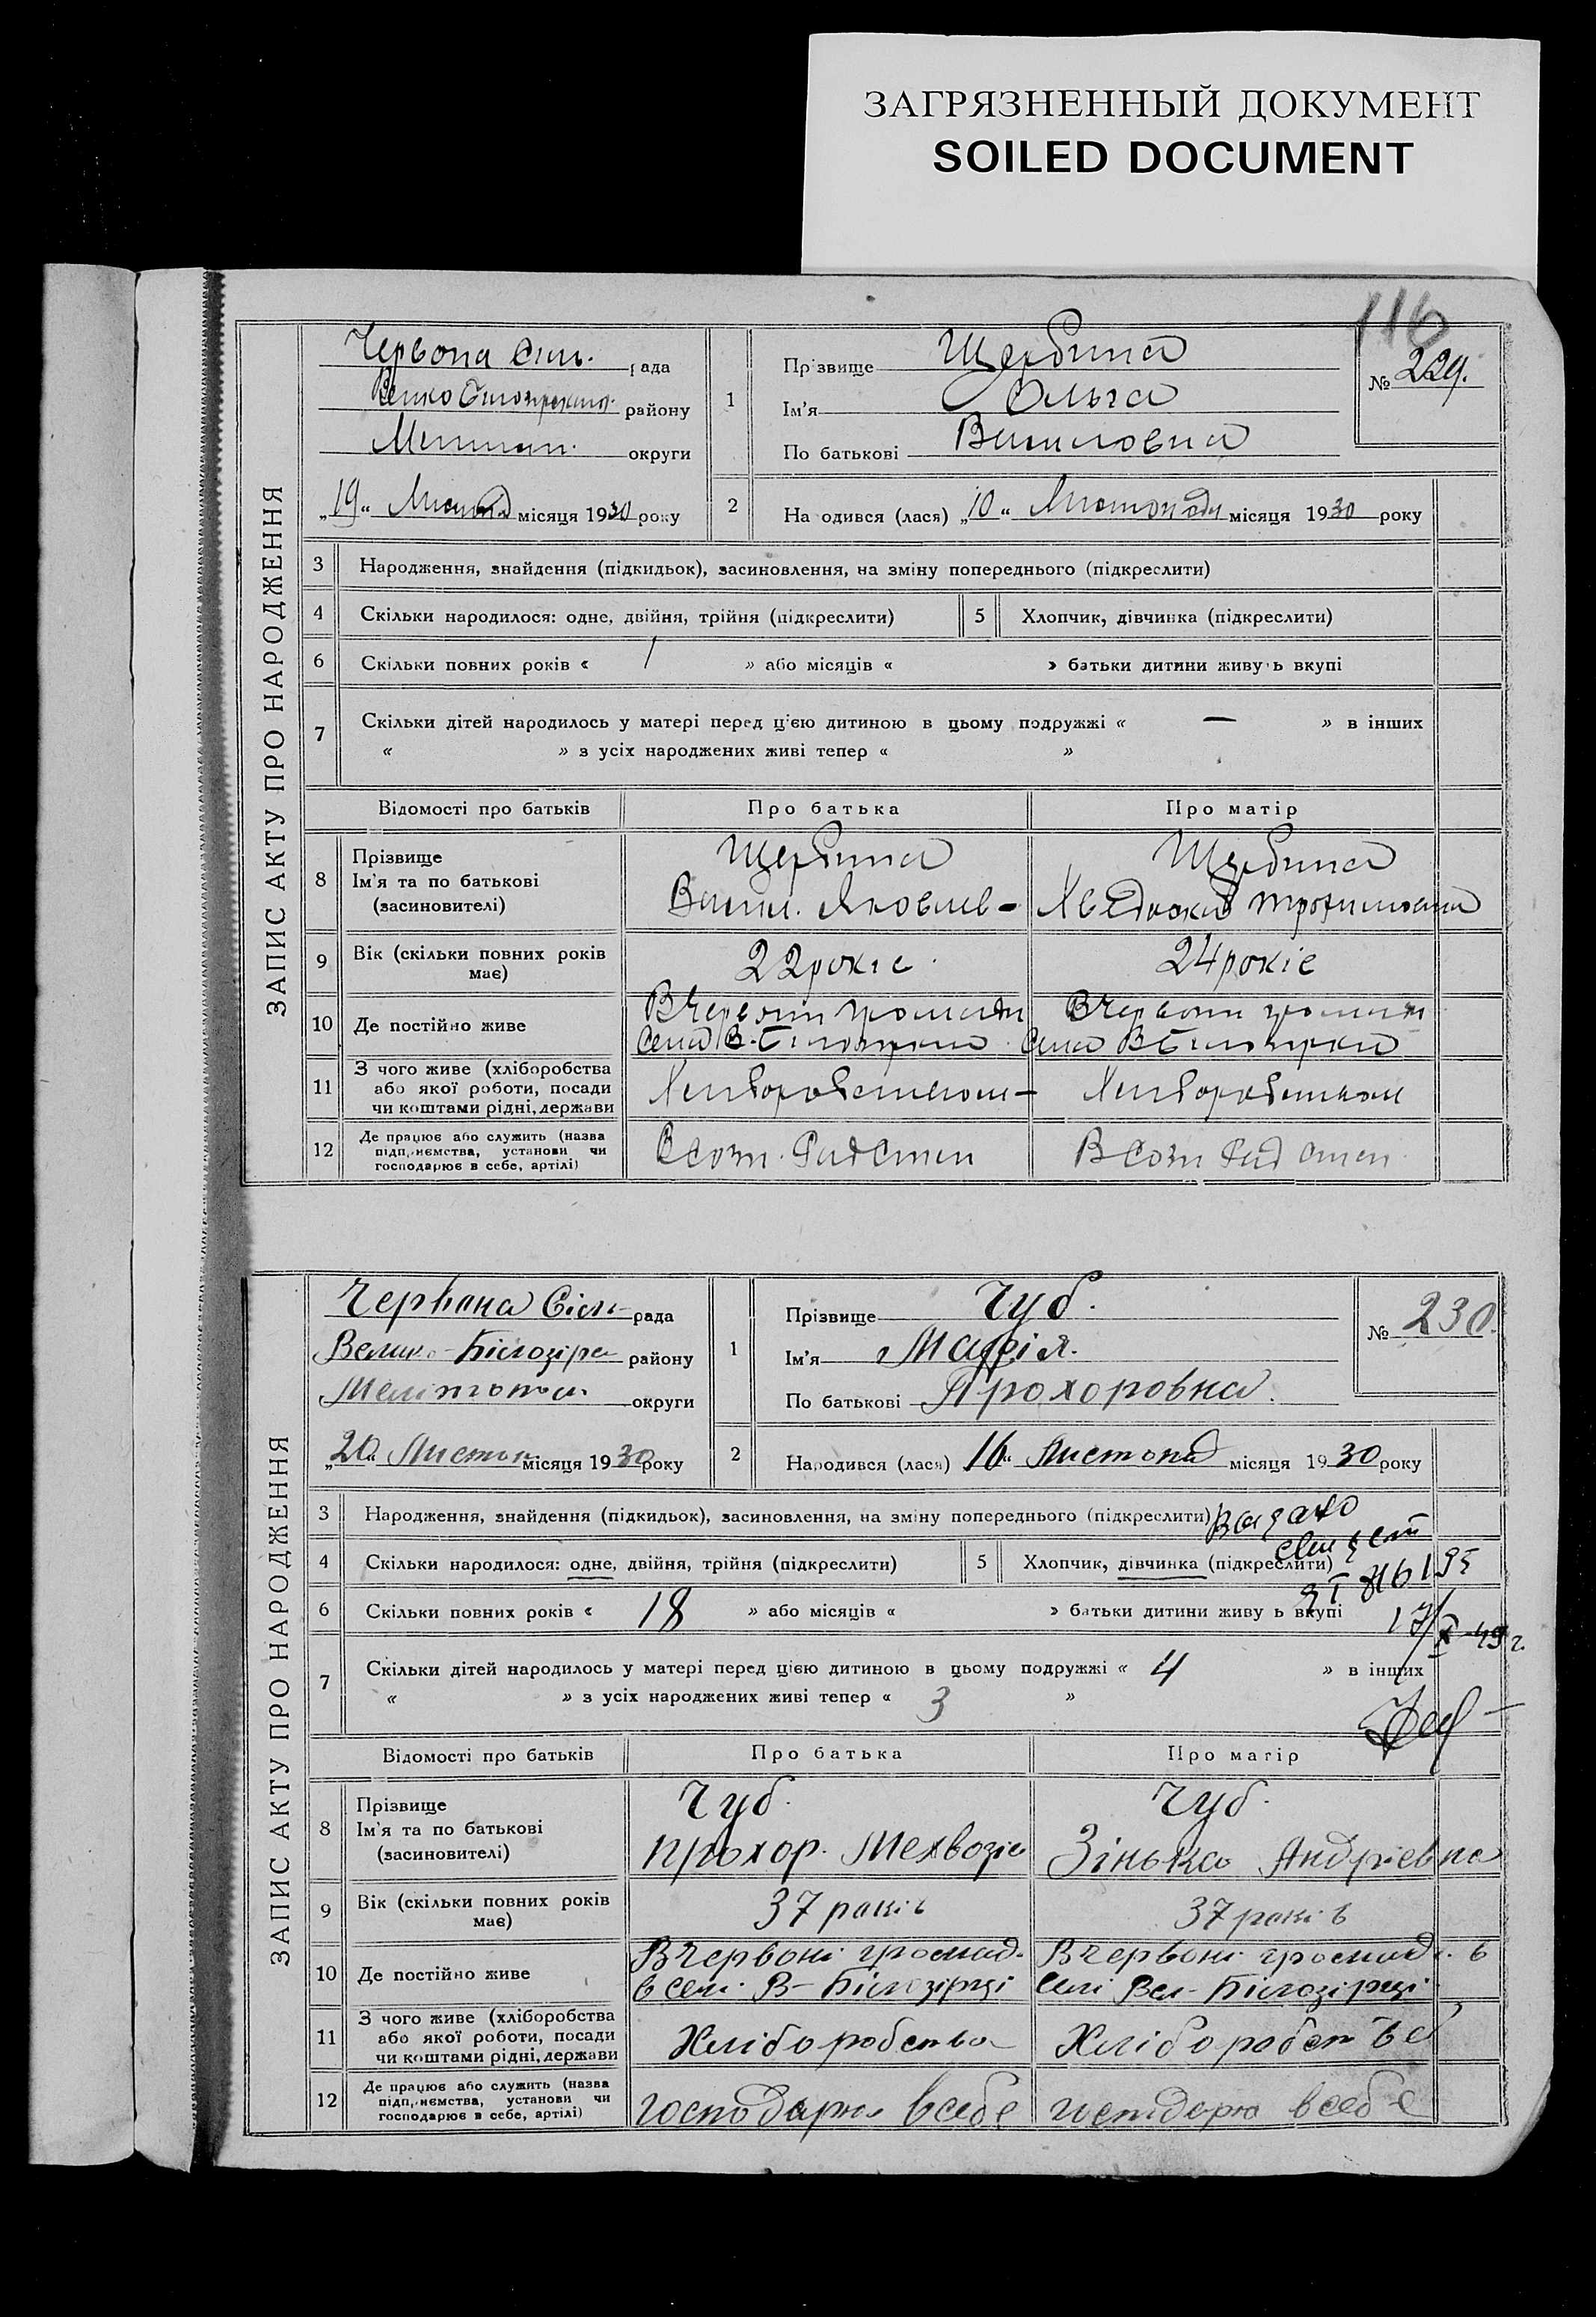 ЗАГРЯЗНЕННЫЙ ДОКУМЕНТ
SOILED DOCUMENT
116
ЗАПИС АКТУ ПРО НАРОДЖЕННЯ
Червона сіль. рада
району
округи
„19“ місяця 1930 року
1
Прізвище Щербина
Ім'я Ольга
По батькові Василовна
№ 229.
2
На одився (лася) „10“ Листопада місяця 1930 року
3 Народження, знайдення (підкидьок), засиновлення, на зміну попереднього (підкреслити)
4 Скільки народилося: одне, двійня, трійня (підкреслити) 5 Хлопчик, дівчинка (підкреслити)
6 Скільки повних років « 1 » або місяців « » батьки дитини живу ь вкупі
7 Скільки дітей народилось у матері перед цією дитиною в цьому подружжі « — » в інших
« » з усіх народжених живі тепер « »
Відомості про батьків Про батька Про матір
8 Прізвище
Ім'я та по батькові
(засиновителі)
Щербина
Васил. Яковлев-
Щербина
9 Вік (скільки повних років
має)
22 років
24 років
10 Де постійно живе
В Червоній громади
села В-Білозірка
В Червоній громади
села В Білозірка
11 З чого живе (хліборобства
або якої роботи, посади
чи коштами рідні, держави
Хліборобством-
Хліборобством
12 Де працює або служить (назва
підп, иємства, установи чи
господарює в себе, артілі)
ЗАПИС АКТУ ПРО НАРОДЖЕННЯ
Червона Сіль- рада
Велико-Білозіре району
Мелітопол округи
„20“ Листоп місяця 1930 року
1
Прізвище Чуб.
Ім'я Марія.
По батькові Прохоровна.
№ 230.
2
Народився (лася) 16“ Листопад місяця 1930 року
3 Народження, знайдення (підкидьок), засиновлення, на зміну попереднього (підкреслити)
4 Скільки народилося: одне, двійня, трійня (підкреслити) 5 Хлопчик, дівчинка (підкреслити)
6 Скільки повних років « 18 » або місяців « » батьки дитини живу ь вкупі
17/X-49 г.
7 Скільки дітей народилось у матері перед цією дитиною в цьому подружжі « 4 » в інших
« » з усіх народжених живі тепер « 3 »
Відомості про батьків Про батька Про матір
8 Прізвище
Ім'я та по батькові
(засиновителі)
Чуб.
Прохор.
Чуб.
Зінька Андріевна
9 Вік (скільки повних років
має)
37 років
37 років
10 Де постійно живе
В Червоні громад.
в селі В-Білозірці
В червоні громаді. в
селі Вел-Білозірці
11 З чого живе (хліборобства
або якої роботи, посади
чи коштами рідні, держави
Хліборобство
Хліборобств
12 Де працює або служить (назва
підп, иємства, установи чи
господарює в себе, артілі)
господарю в себе
господарю в себе